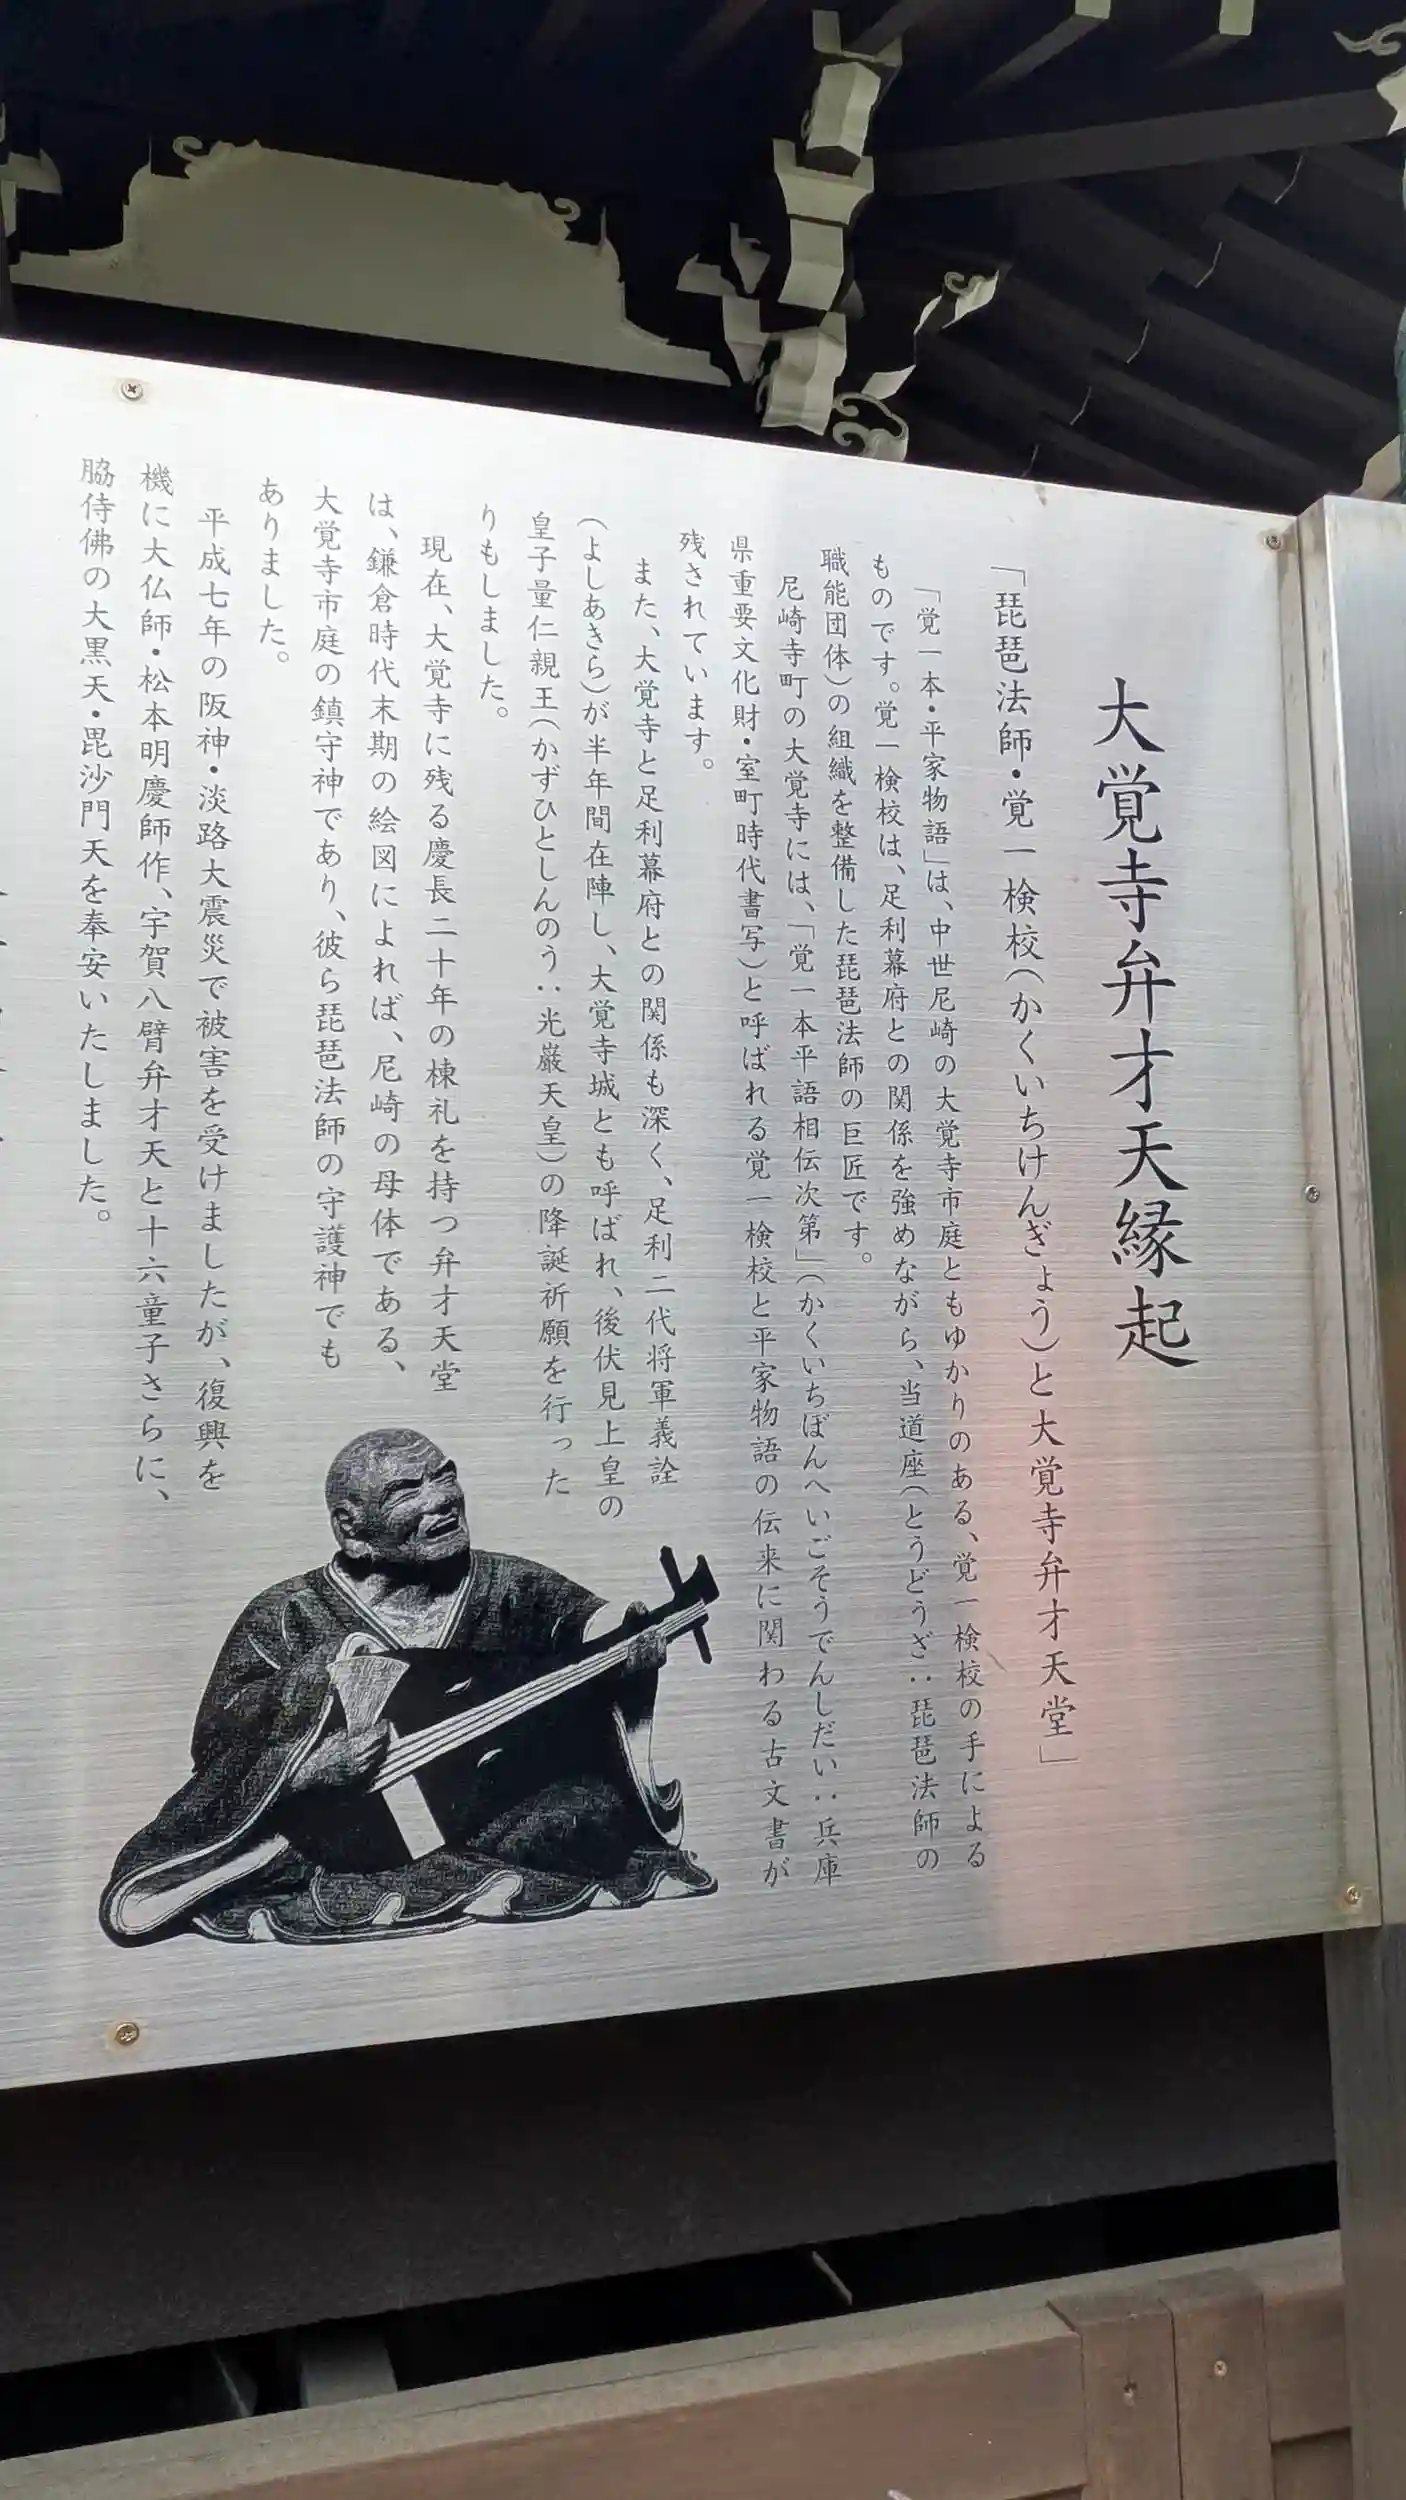 大覚寺弁才天縁起
「琵琶法師・覚一検校(かくいちけんぎょう)と大覚寺弁才天堂」
「覚一本・平家物語」は、中世尼崎の大覚寺市庭ともゆかりのある、覚一検校の手による
ものです。覚一検校は、足利幕府との関係を強めながら、当道座(とうどうざ:琵琶法師の
職能団体)の組織を整備した琵琶法師の巨匠です。
尼崎寺町の大覚寺には、「覚一本平語相伝次第」(かくいちぼんへいごそうでんしだい:兵庫
県重要文化財・室町時代書写)と呼ばれる覚一検校と平家物語の伝来に関わる古文書が
残されています。
また、大覚寺と足利幕府との関係も深く、足利二代将軍義詮
(よしあきら)が半年間在陣し、大覚寺城とも呼ばれ、後伏見上皇の
皇子量仁親王(かずひとしんのう:光巌天皇)の降誕祈願を行った
りもしました。
現在、大覚寺に残る慶長二十年の棟札を持つ弁才天堂
は、鎌倉時代末期の絵図によれば、尼崎の母体である、
大覚寺市庭の鎮守神であり、彼ら琵琶法師の守護神でも
ありました。
平成七年の阪神・淡路大震災で被害を受けましたが、復興を
機に大仏師・松本明慶師作、宇賀八臂弁才天と十六童子さらに、
脇侍佛の大黒天・毘沙門天を奉安いたしました。